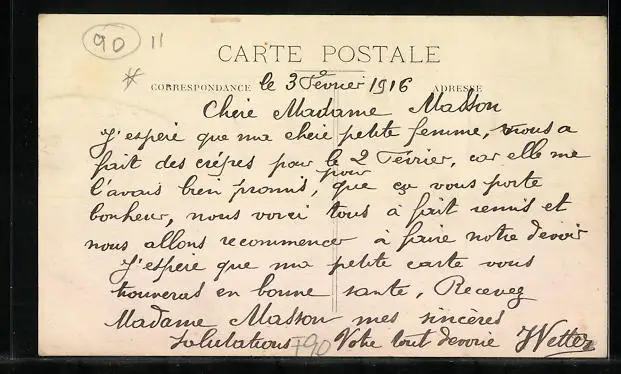 90 11
CARTE POSTALE
CORRESPONDANCE le 3 Février 1916 ADRESSE
Chére Madame Masson
J'espere que ma chere petite femme, vous a
fait des crépes pour le 2 Fevrier, car elle me
l'avais bien promis, pour que ça vous porte
bonheur, nous voici tous à fait remis et
nous allons recommencer à faire notre devoir
J'espere que ma petite carte vous
trouveras en bonne sante, Recevez
Madame Masson mes sincères
salutations Votre tout devoué JVetter
T90